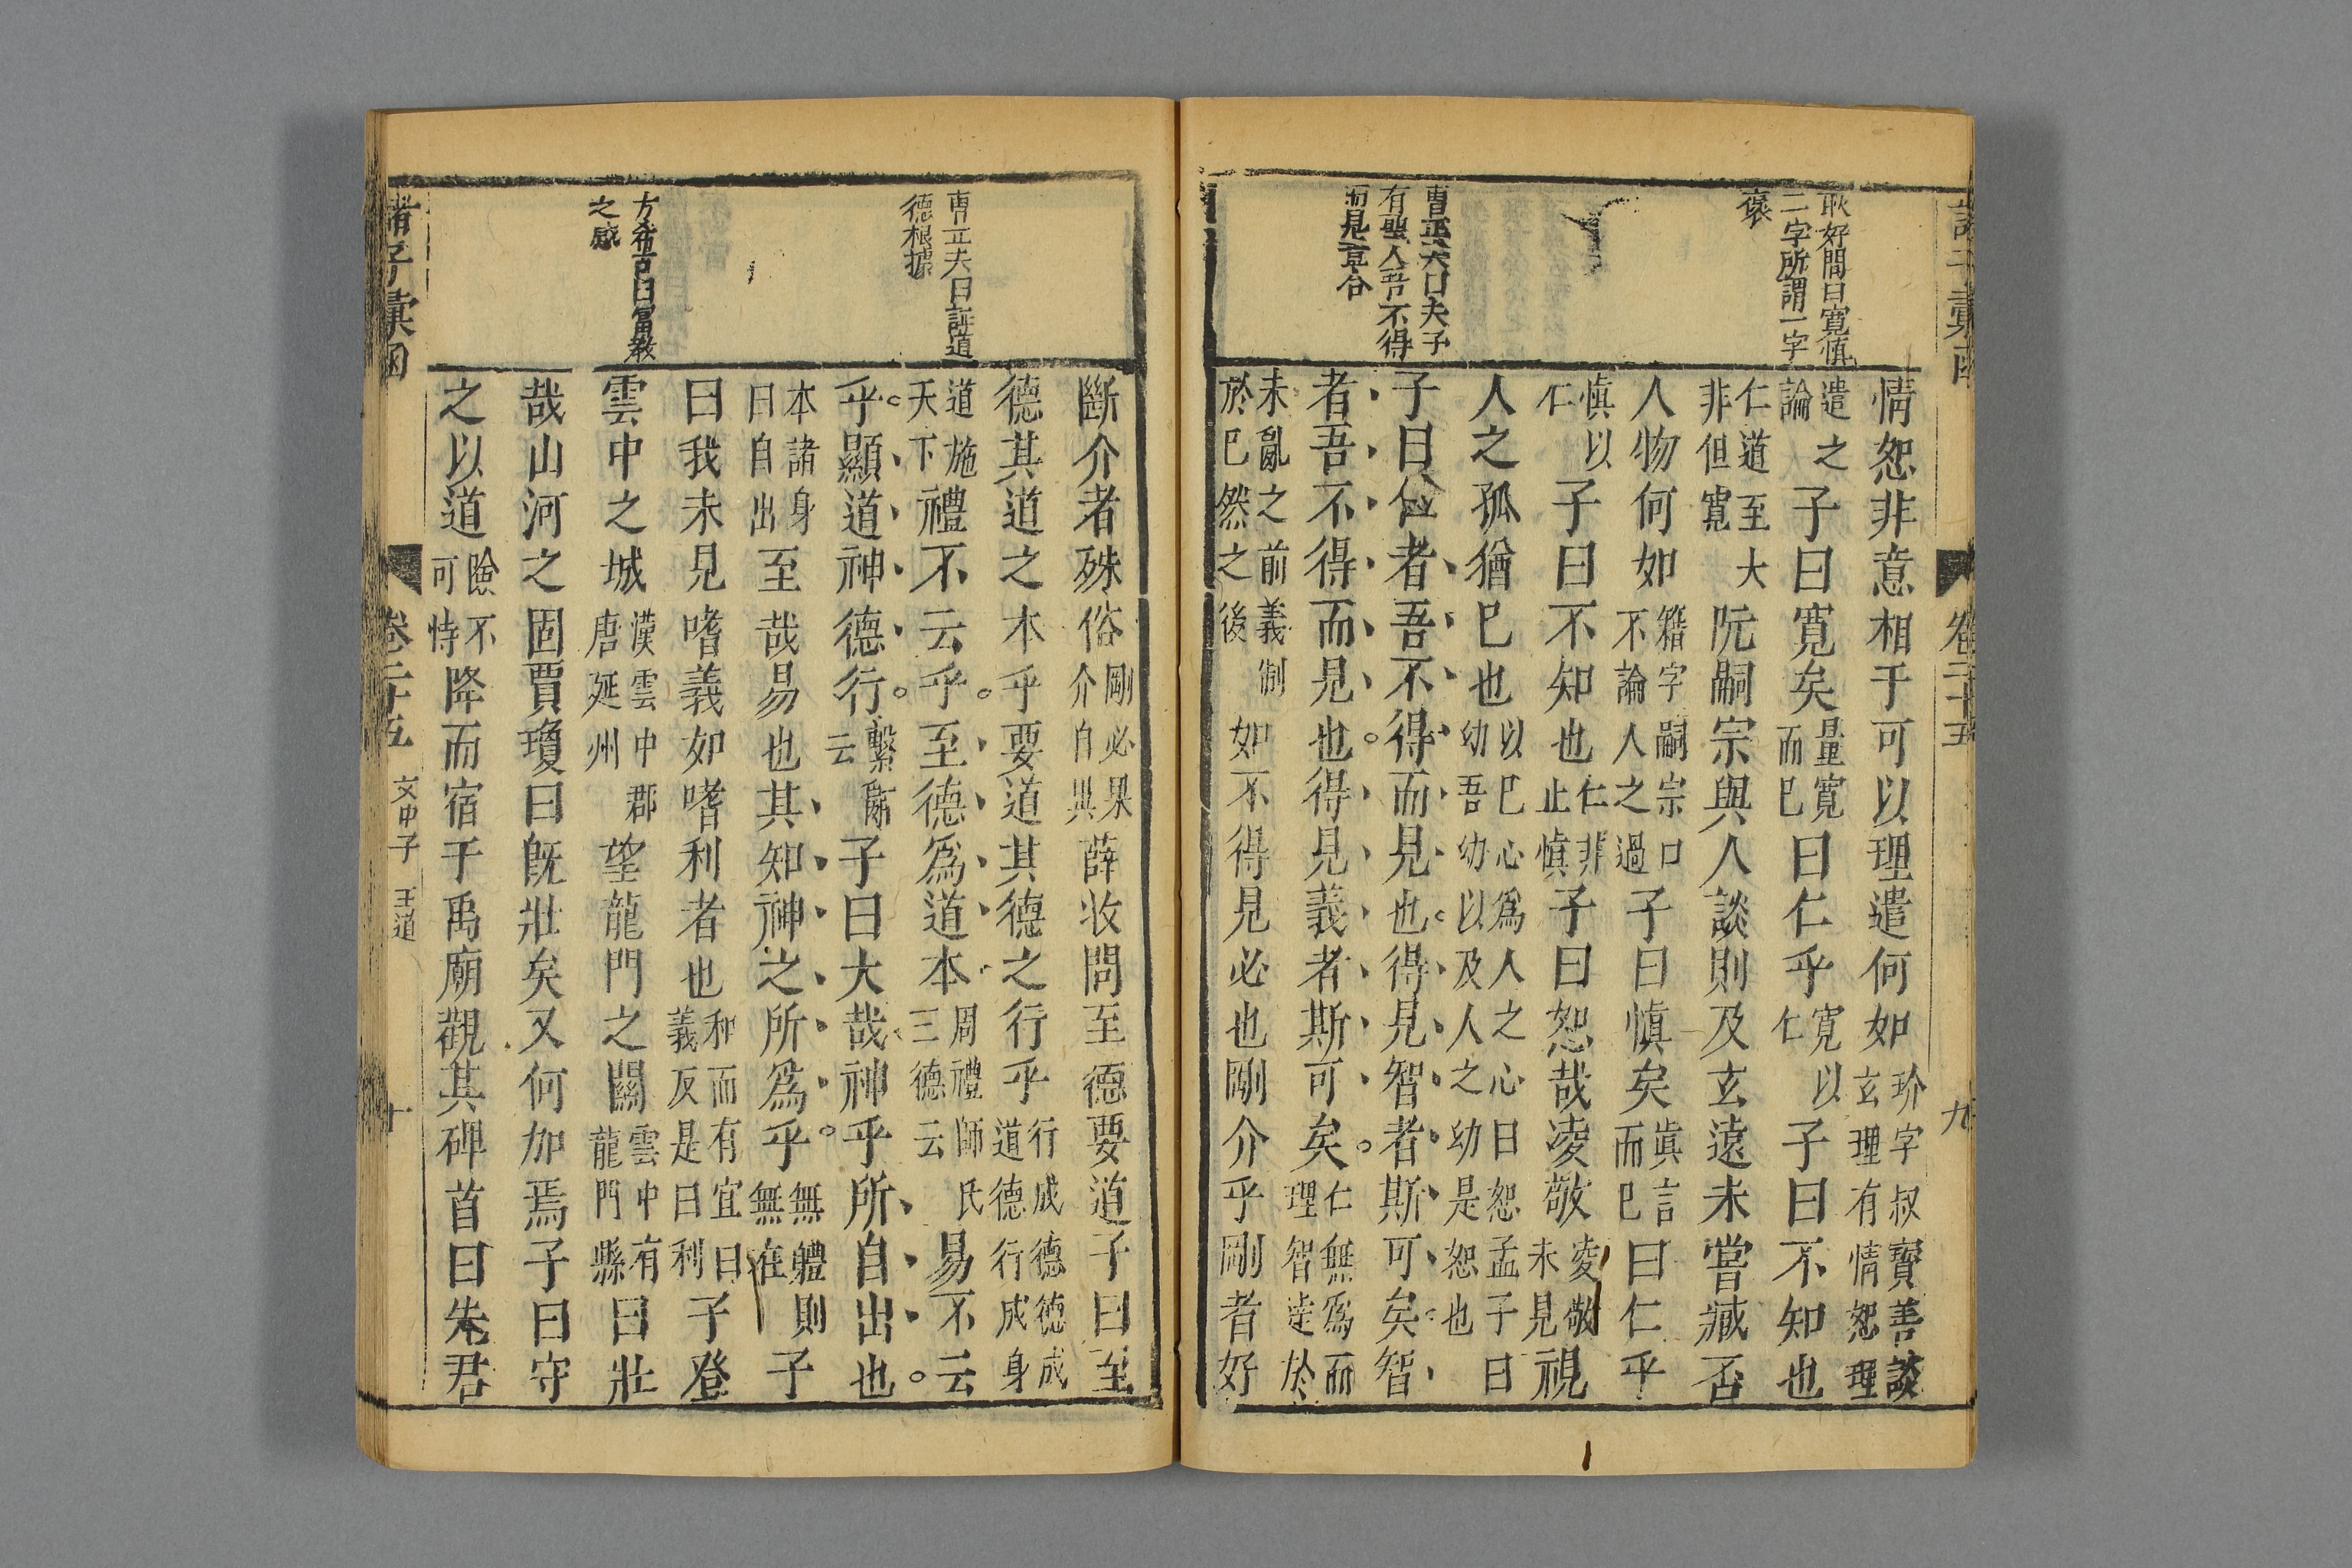 耿好問曰寬慎
二字所謂一字
褒
曹正夫曰夫子
有聖人吾不得
而見章合
情恕非意相干可以理遣何如玠字叔寶善談玄理有情恕理
遣之論子曰寬矣量寬而已曰仁乎寬以仁子曰不知也
仁道至大非但寬阮嗣宗與人談則及玄遠未嘗臧否
人物何如籍字嗣宗口不論人之過子曰慎矣眞言而已曰仁乎
慎以仁子曰不知也仁非止慎子曰恕哉凌敬凌敬未見視
人之孤猶已也以已心爲人之心曰恕孟子曰幼吾幼以及人之幼是恕也
子曰仁者吾不得而見也得見智者斯可矣智
者吾不得而見也得見義者斯可矣仁無爲而理智達於
未亂之前義制於已然之後如不得見必也剛介乎剛者好
諸子彙函
卷二十五
九
曹正夫曰語道
德根據
方希古曰富教
之感
斷介者殊俗剛必果介自異薛收問至德要道子曰至
德其道之本乎要道其德之行乎行成德德成道德行成身
道施天下禮不云乎至德爲道本周禮師氏三德云易不云
乎顯道神德行繫辭云子曰大哉神乎所自出也
本諸身曰自出至哉易也其知神之所爲乎無體則無在子
曰我未見嗜義如嗜利者也和而有宜曰義反是曰利子登
雲中之城漢雲中郡唐延州望龍門之關雲中有龍門縣曰壯
哉山河之固賈瓊曰旣壯矣又何加焉子曰守
之以道險不可恃降而宿于禹廟觀其碑首曰先君
諸子彙函
卷二十五
文中子
王道
十